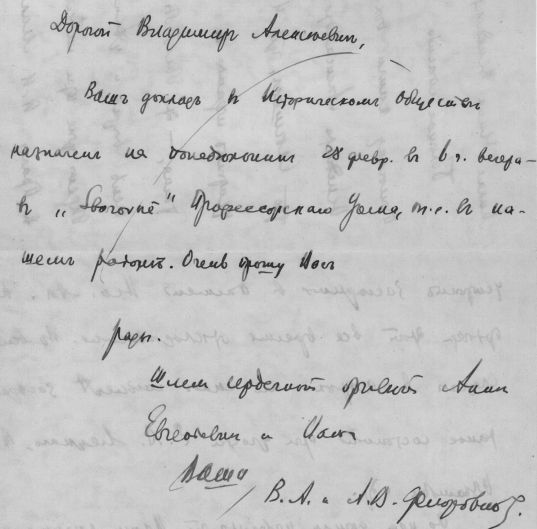 Дорогой Владимир Алексеевич,
Вашъ докладъ въ Историческомъ Обществѣ
назначенъ на понедѣльникъ 28 февр. въ 6 ч. вечера
въ „ Профессорскаго Дома, т.е. въ на-
шемъ районѣ. Очень прошу Васъ
рады.
Шлем сердечный привет Анне
Евгеньевне и Вамъ
Ваши
В. А. и А. В. Флоровские.